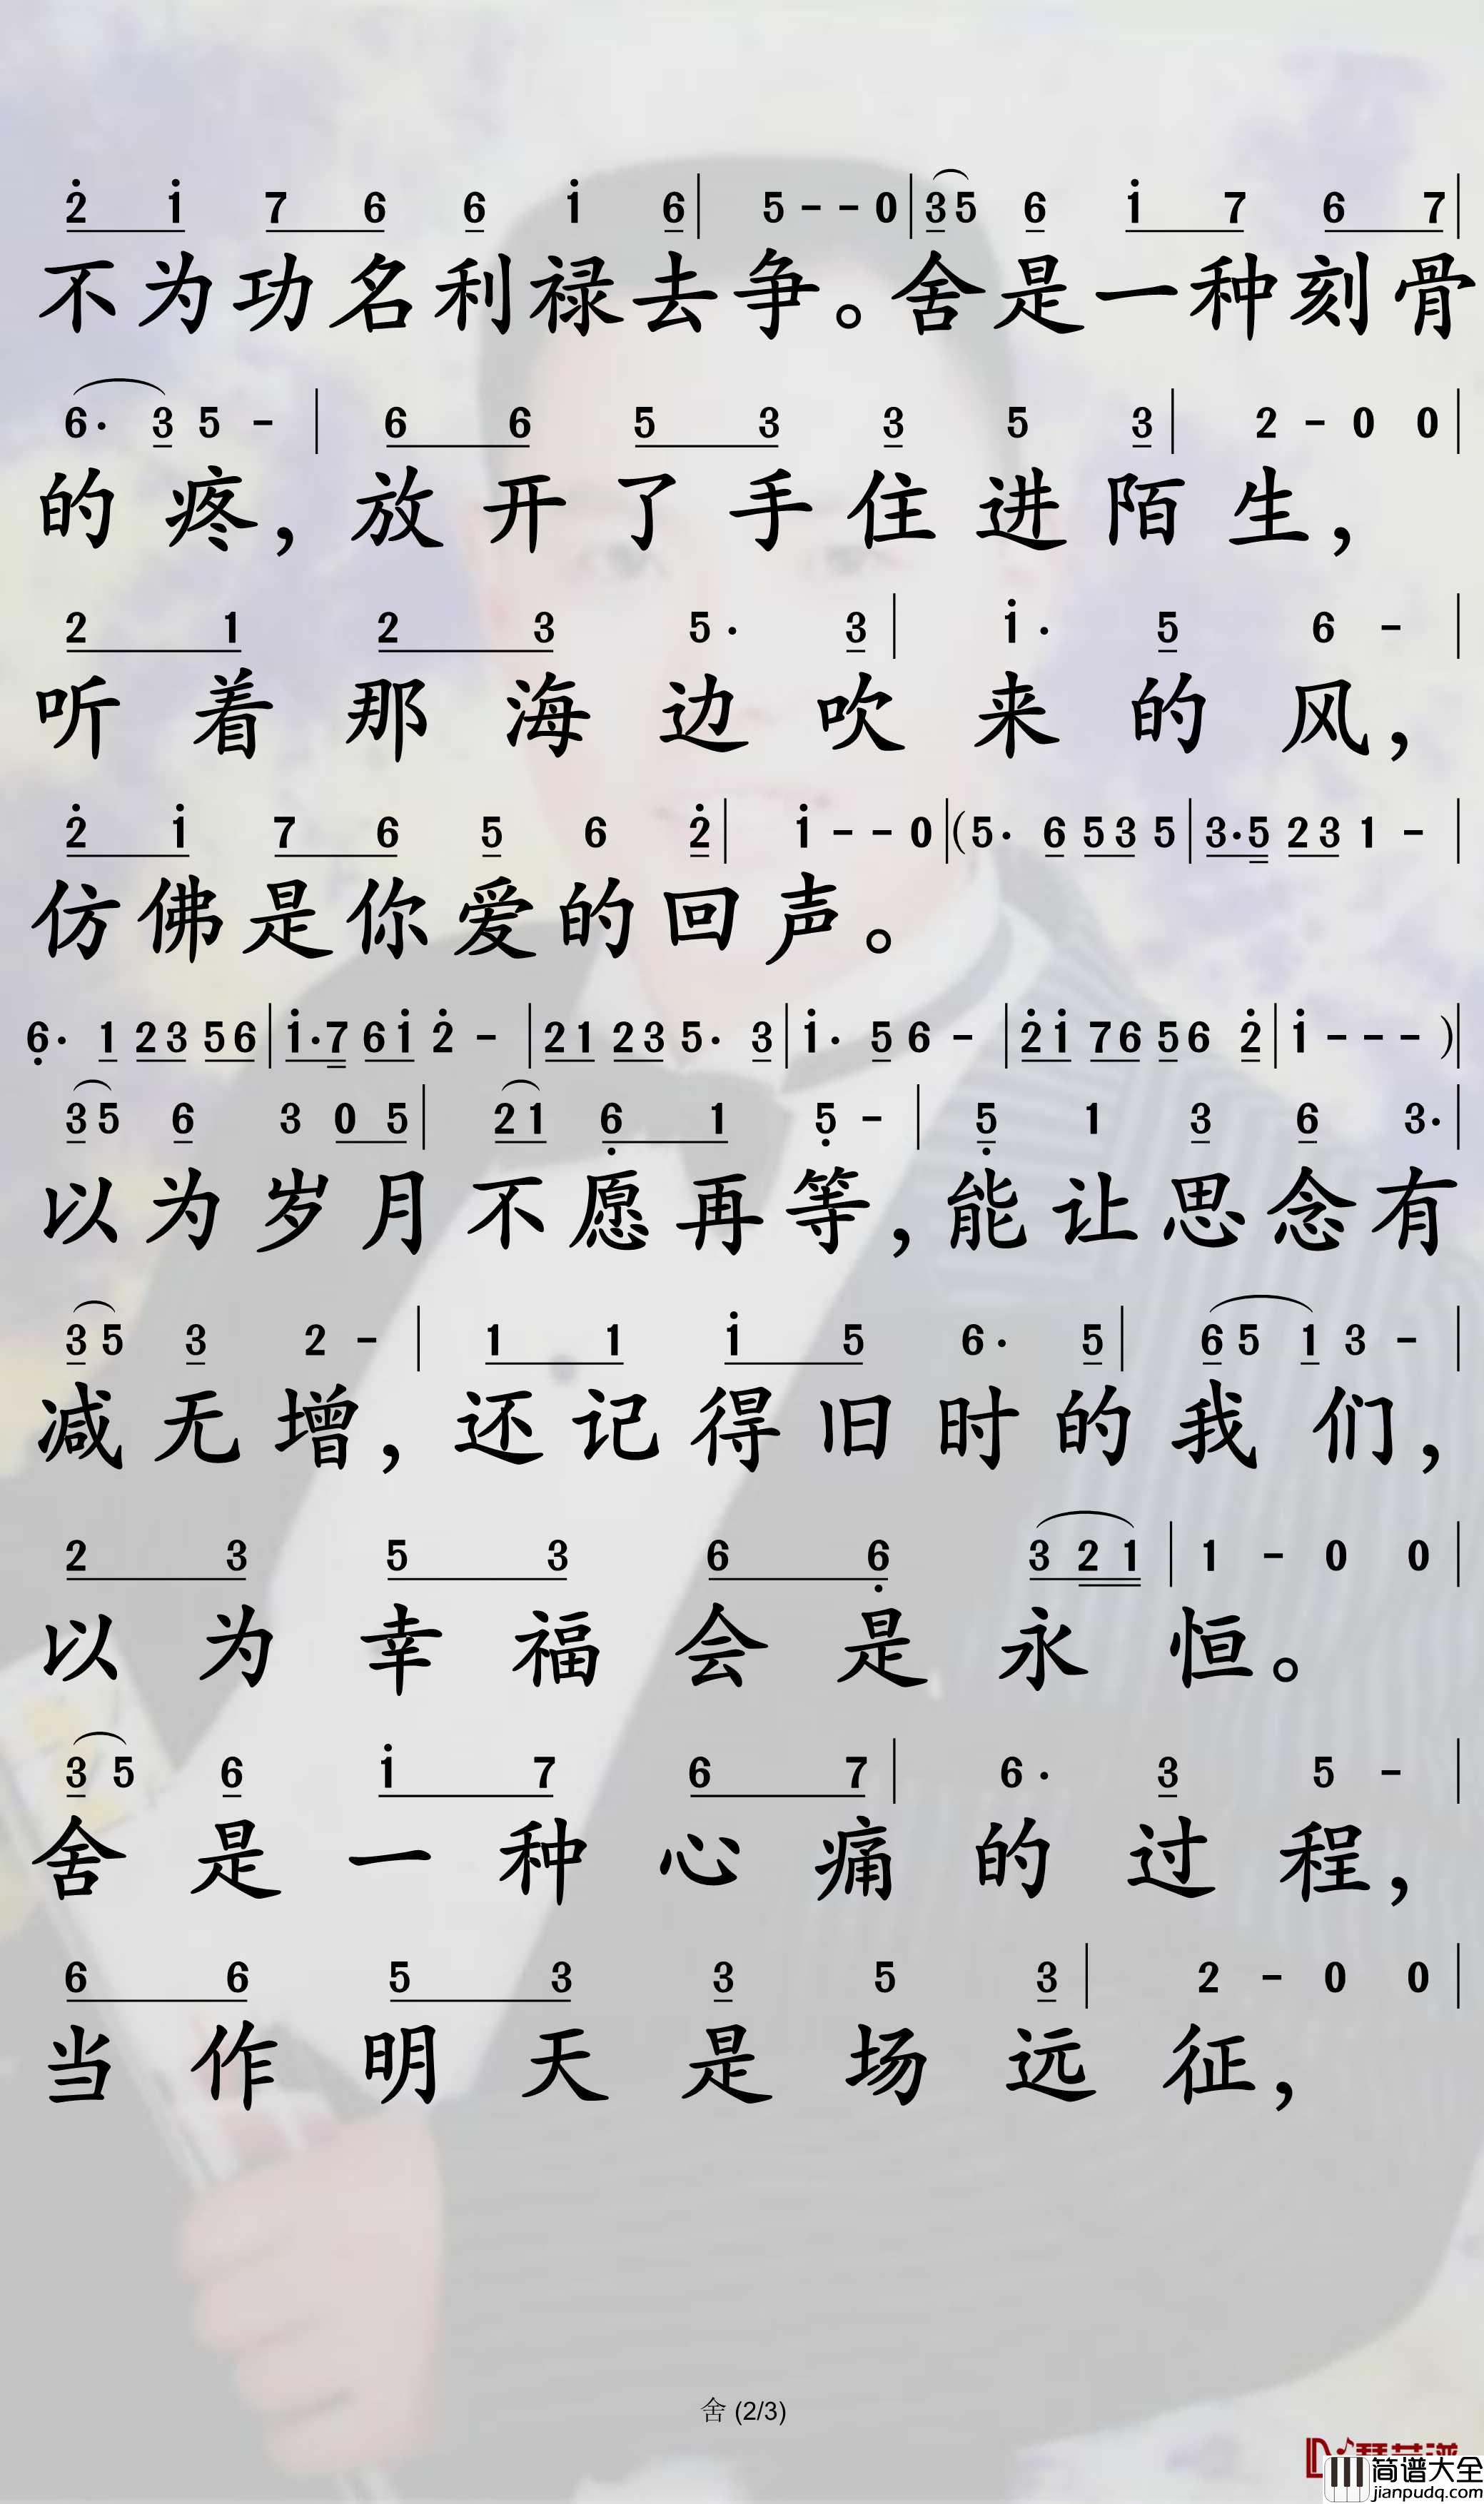 2̇ 1̇ 7 6 6 1̇ 6 | 5 - - 0 | 3 5 6 1̇ 7 6 7 |
不为功名利禄去争。舍是一种刻骨
6· 3 5 - | 6 6 5 3 3 5 3 | 2 - 0 0 |
的疼，放开了手住进陌生，
2 1 2 3 5· 3 | 1̇· 5 6 - |
听着那海边吹来的风，
2̇ 1̇ 7 6 5 6 2̇ | 1̇ - - 0 | (5· 6 5 3 5 | 3·5 2 3 1 - |
仿佛是你爱的回声。
6̣· 1 2 3 5 6 | 1̇·7 6 1̇ 2̇ - | 2 1 2 3 5· 3 | 1̇· 5 6 - | 2̇ 1̇ 7 6 5 6 2̇ | 1̇ - - - ) |
3 5 6 3 0 5 | 2 1 6̣ 1 5̣ - | 5̣ 1 3 6 3· |
以为岁月不愿再等，能让思念有
3 5 3 2 - | 1 1 1̇ 5 6· 5 | 6 5 1 3 - |
减无增，还记得旧时的我们，
2 3 5 3 6 6̣ 3 2 1 | 1 - 0 0 |
以为幸福会是永恒。
3 5 6 1̇ 7 6 7 | 6· 3 5 - |
舍是一种心痛的过程，
6 6 5 3 3 5 3 | 2 - 0 0 |
当作明天是场远征，
舍 (2/3)
简谱大全
jianpudq.com